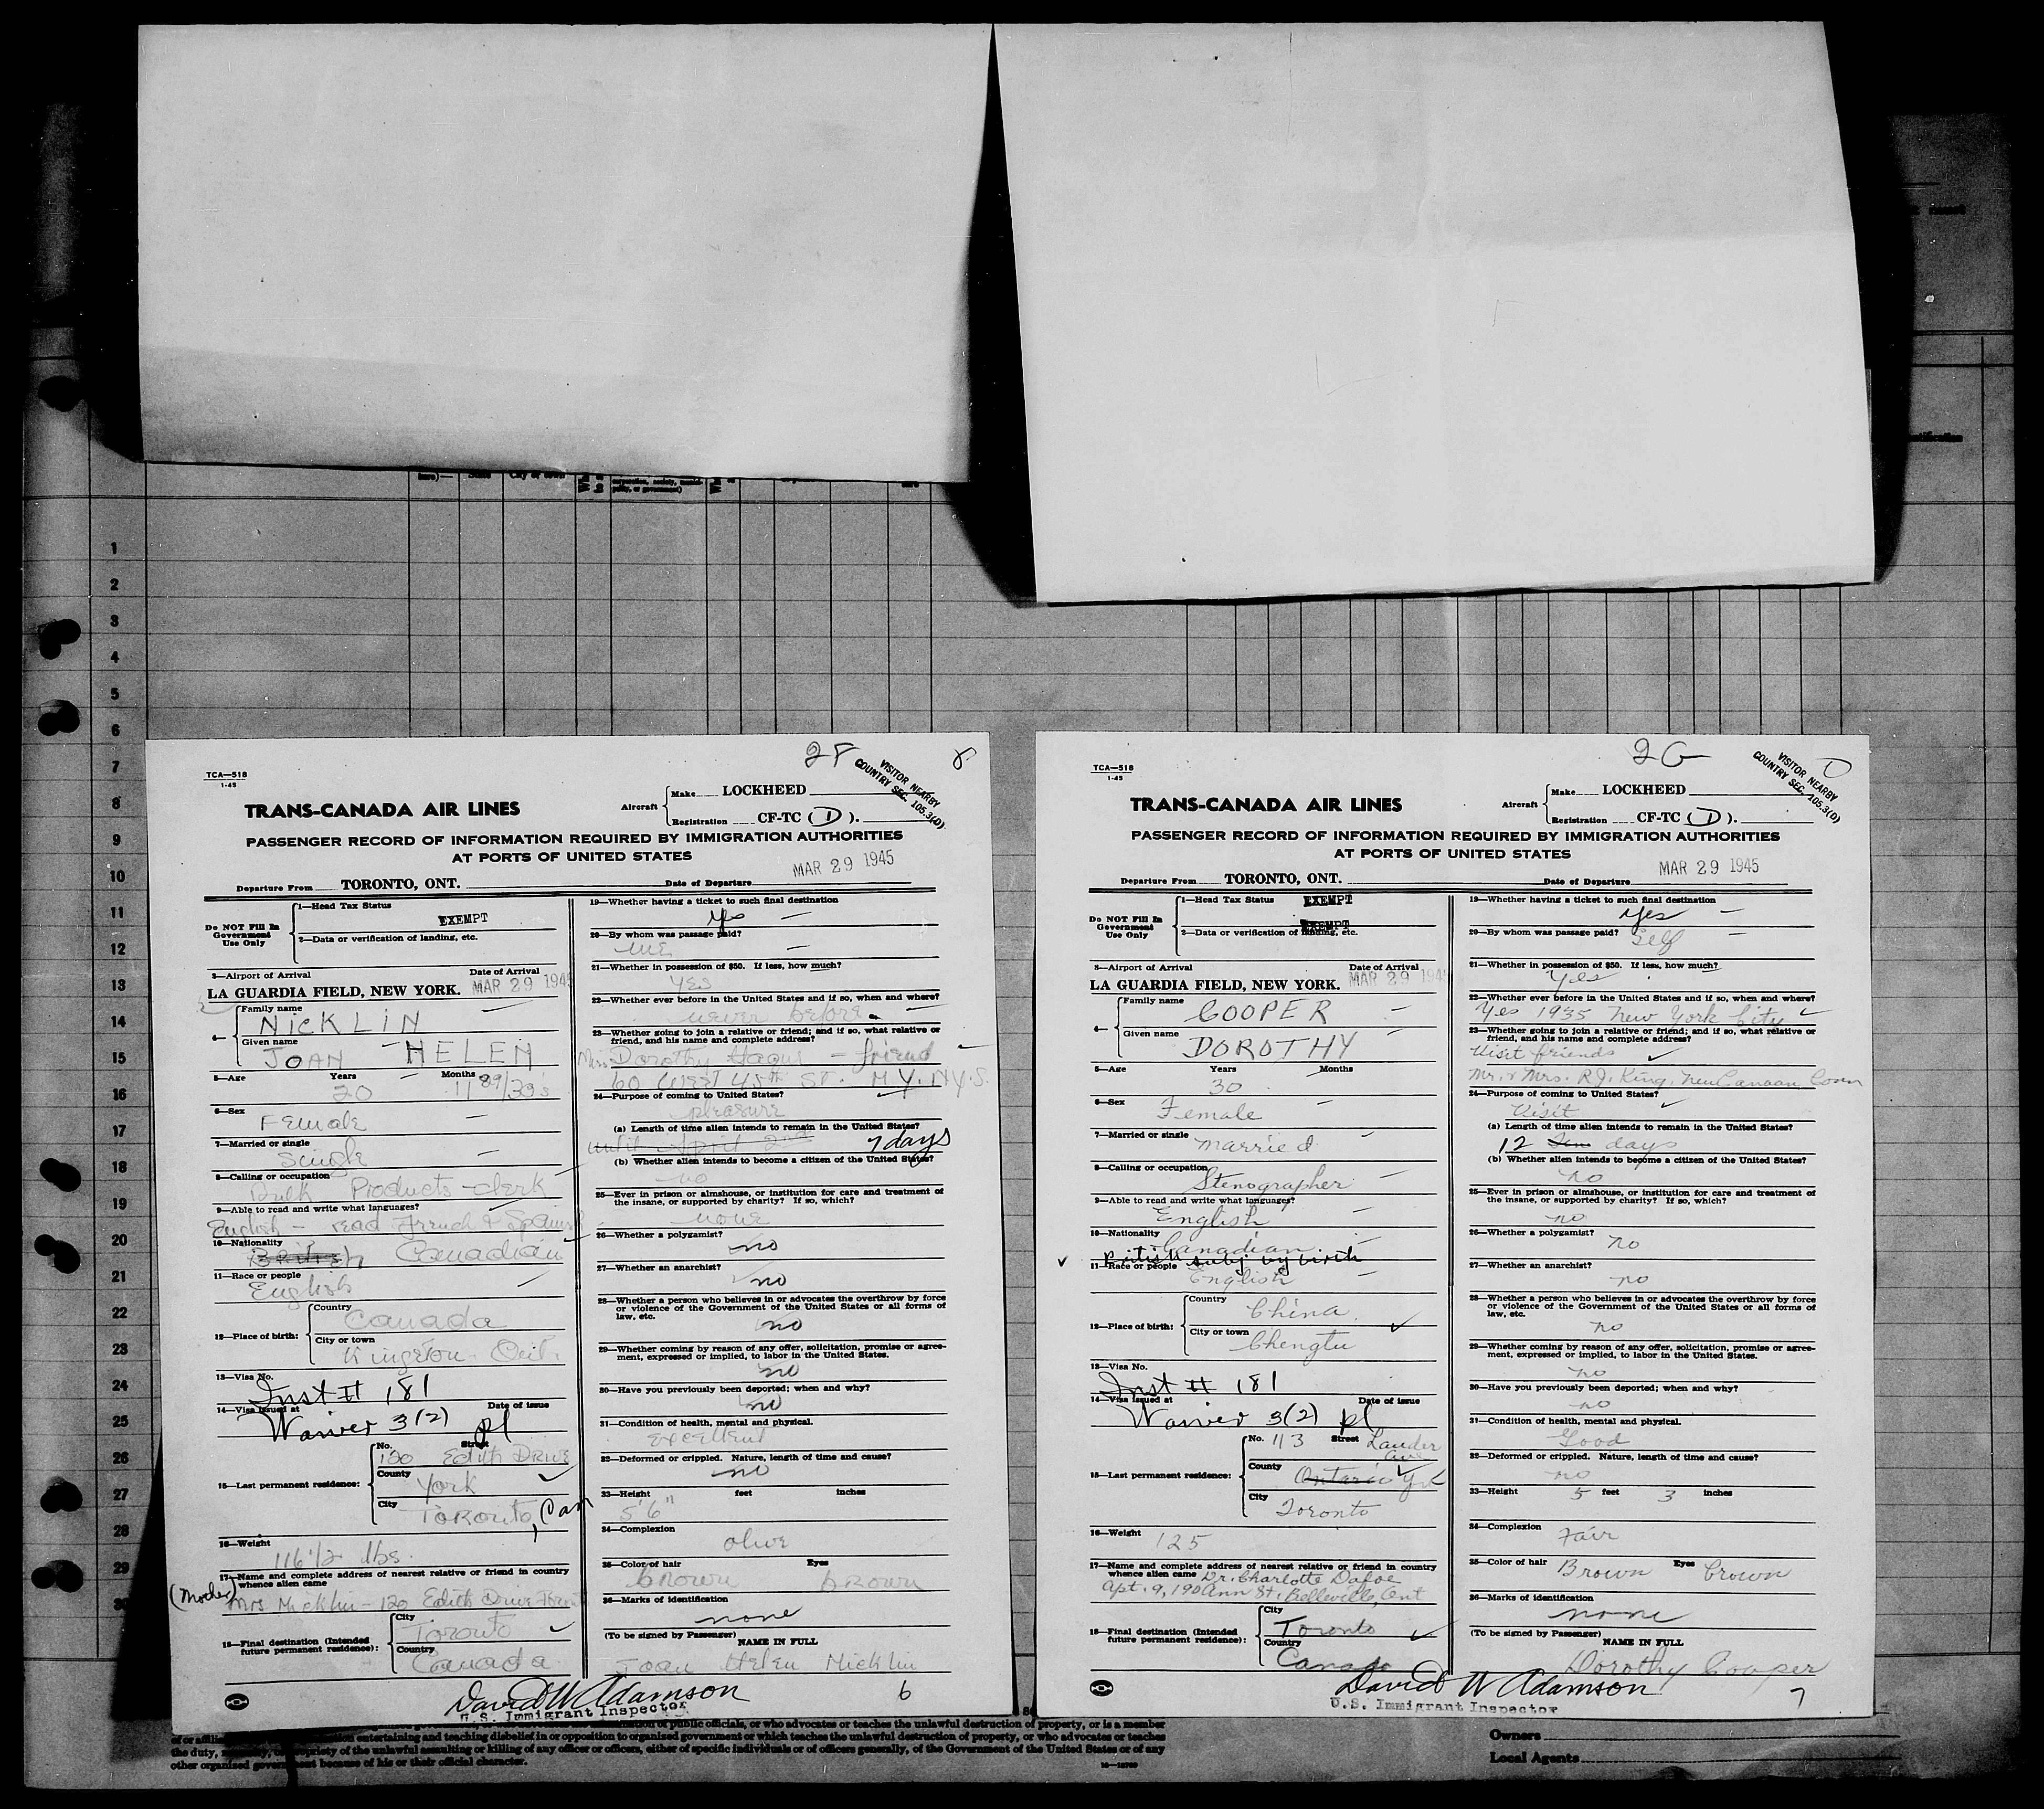 1
2
3
4
5
6
7
8
9
10
11
12
13
14
15
16
17
18
19
20
21
22
23
24
25
26
27
28
29
30
2F 8
VISITOR NEARBY
COUNTRY SEC. 105.3(D)
TCA—518
1-45
TRANS-CANADA AIR LINES
Aircraft Make LOCKHEED
Registration CF-TC ( D ).
PASSENGER RECORD OF INFORMATION REQUIRED BY IMMIGRATION AUTHORITIES
AT PORTS OF UNITED STATES
Departure From TORONTO, ONT. Date of Departure MAR 29 1945
Do NOT Fill In Government Use Only
1—Head Tax Status EXEMPT
2—Data or verification of landing, etc.
3—Airport of Arrival Date of Arrival
LA GUARDIA FIELD, NEW YORK. MAR 29 1945
4— Family name NICKLIN
Given name JOAN HELEN
5—Age Years 20 Months 11 89/33's
6—Sex Female
7—Married or single Single
8—Calling or occupation Bulk Products - clerk
9—Able to read and write what languages?
English - read French & Spanish
10—Nationality British Canadian
11—Race or people English
12—Place of birth: Country Canada
City or town Kingston Ont.
13—Visa No. Inst # 181
14—Visa issued at Date of issue
Waiver 3(2) pl
15—Last permanent residence: No. 120 Street Edith Drive
County York
City Toronto, Can
16—Weight 116 1/2 lbs.
17—Name and complete address of nearest relative or friend in country
whence alien came
(Mother) Mrs Nicklin - 120 Edith Drive
18—Final destination (Intended
future permanent residence): City Toronto
Country Canada
19—Whether having a ticket to such final destination
Yes
20—By whom was passage paid?
me
21—Whether in possession of $50. If less, how much?
Yes
22—Whether ever before in the United States and if so, when and where?
never before
23—Whether going to join a relative or friend; and if so, what relative or
friend, and his name and complete address?
Mrs. Dorothy - friend
60 West 45th St. N.Y. N.Y.S.
24—Purpose of coming to United States?
pleasure
(a) Length of time alien intends to remain in the United States?
until April 2nd 7 days
(b) Whether alien intends to become a citizen of the United States?
no
25—Ever in prison or almshouse, or institution for care and treatment of
the insane, or supported by charity? If so, which?
none
26—Whether a polygamist?
no
27—Whether an anarchist?
no
28—Whether a person who believes in or advocates the overthrow by force
or violence of the Government of the United States or all forms of
law, etc.
no
29—Whether coming by reason of any offer, solicitation, promise or agree-
ment, expressed or implied, to labor in the United States.
no
30—Have you previously been deported; when and why?
no
31—Condition of health, mental and physical.
excellent
32—Deformed or crippled. Nature, length of time and cause?
no
33—Height feet inches
5'6"
34—Complexion
olive
35—Color of hair Eyes
brown brown
36—Marks of identification
none
(To be signed by Passenger)
NAME IN FULL
Joan Helen Nicklin
David W Adamson 6
U.S. Immigrant Inspector
2G D
VISITOR NEARBY
COUNTRY SEC. 105.3(D)
TCA—518
1-45
TRANS-CANADA AIR LINES
Aircraft Make LOCKHEED
Registration CF-TC ( D ).
PASSENGER RECORD OF INFORMATION REQUIRED BY IMMIGRATION AUTHORITIES
AT PORTS OF UNITED STATES
Departure From TORONTO, ONT. Date of Departure MAR 29 1945
Do NOT Fill In Government Use Only
1—Head Tax Status EXEMPT
EXEMPT
2—Data or verification of landing, etc.
3—Airport of Arrival Date of Arrival
LA GUARDIA FIELD, NEW YORK. MAR 29 1945
4— Family name COOPER
Given name DOROTHY
5—Age Years 30 Months
6—Sex Female
7—Married or single Married
8—Calling or occupation Stenographer
9—Able to read and write what languages?
English
10—Nationality Canadian
British subj by birth
11—Race or people English
12—Place of birth: Country China
City or town Chengtu
13—Visa No. Inst # 181
14—Visa issued at Date of issue
Waiver 3(2) pl
15—Last permanent residence: No. 113 Street Lauder Ave
County Ontario York
City Toronto
16—Weight 125
17—Name and complete address of nearest relative or friend in country
whence alien came Dr. Charlotte Dafoe
Apt. 9, 190 Ann St. Belleville, Ont
18—Final destination (Intended
future permanent residence): City Toronto
Country Canada
19—Whether having a ticket to such final destination
Yes
20—By whom was passage paid?
Self
21—Whether in possession of $50. If less, how much?
Yes
22—Whether ever before in the United States and if so, when and where?
Yes 1935 New York City
23—Whether going to join a relative or friend; and if so, what relative or
friend, and his name and complete address?
Visit friends
Mr. & Mrs. R.J. King, New Canaan, Conn
24—Purpose of coming to United States?
Visit
(a) Length of time alien intends to remain in the United States?
12 days
(b) Whether alien intends to become a citizen of the United States?
no
25—Ever in prison or almshouse, or institution for care and treatment of
the insane, or supported by charity? If so, which?
no
26—Whether a polygamist?
no
27—Whether an anarchist?
no
28—Whether a person who believes in or advocates the overthrow by force
or violence of the Government of the United States or all forms of
law, etc.
no
29—Whether coming by reason of any offer, solicitation, promise or agree-
ment, expressed or implied, to labor in the United States.
no
30—Have you previously been deported; when and why?
no
31—Condition of health, mental and physical.
Good
32—Deformed or crippled. Nature, length of time and cause?
no
33—Height 5 feet 3 inches
34—Complexion
Fair
35—Color of hair Eyes
Brown brown
36—Marks of identification
none
(To be signed by Passenger)
NAME IN FULL
Dorothy Cooper
David W Adamson 7
U.S. Immigrant Inspector
of public officials, or who advocates or teaches the unlawful destruction of property, or is a member
entertaining and teaching disbelief in or opposition to organized government or which teaches the unlawful destruction of property, or who advocates or teaches
the duty, of the unlawful assaulting or killing of any officer or officers, either of specific individuals or of officers generally, of the Government of the United States or of any
other organized government because of his or their official character.
Owners
Local Agents